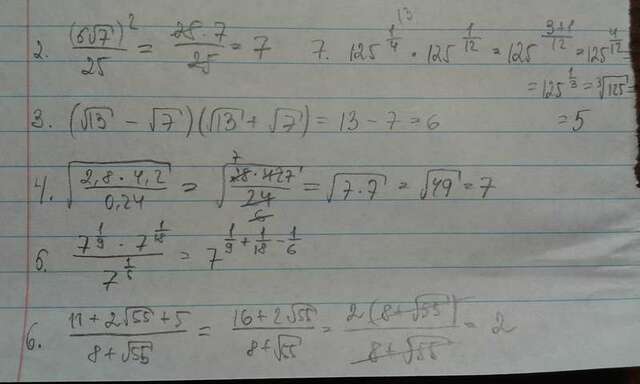 2. (6√7)² / 25 = 25·7 / 25 = 7
13
7. 125^(1/4) · 125^(1/12) = 125^((3+1)/12) = 125^(4/12)
= 125^(1/3) = ³√125
= 5
3. (√13 - √7)(√13 + √7) = 13 - 7 = 6
4. √(2,8·4,2 / 0,24) = √(28·427 / 24) = √7·7 = √49 = 7
7
6
5. 7^(1/9) · 7^(1/18) / 7^(1/6) = 7^(1/9 + 1/18 - 1/6)
6. (11 + 2√55 + 5) / (8 + √55) = (16 + 2√55) / (8 + √55) = 2(8 + √55) / (8 + √55) = 2